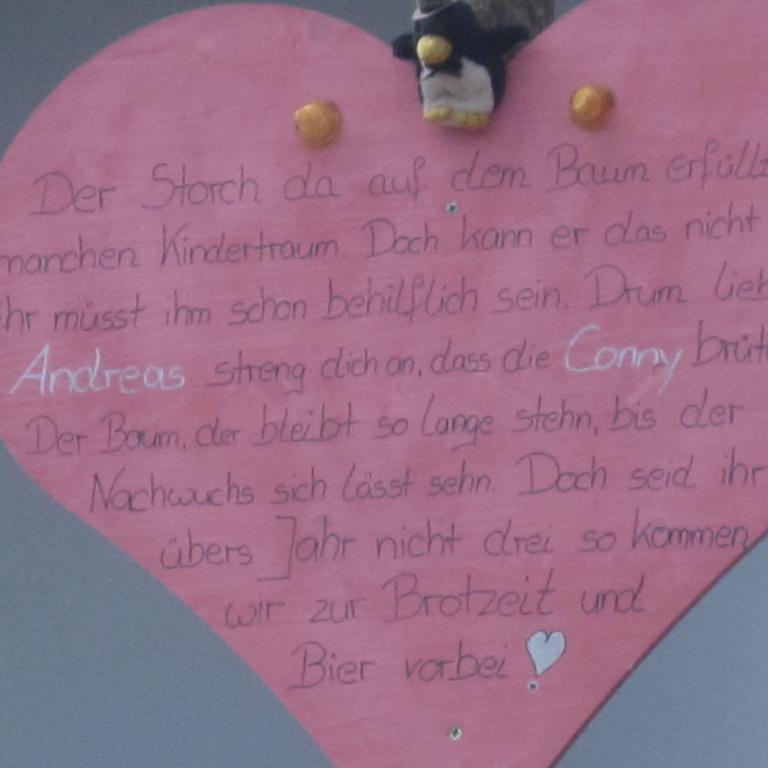 Der Storch da auf dem Baum erfüllt
manchen Kindertraum. Doch kann er das nicht
ihr müsst ihm schon behilflich sein. Drum lieb
Andreas streng dich an, dass die Conny brüt
Der Baum, der bleibt so lange stehn, bis der
Nachwuchs sich lässt sehn. Doch seid ihr
übers Jahr nicht drei so kommen
wir zur Brotzeit und
Bier vorbei !